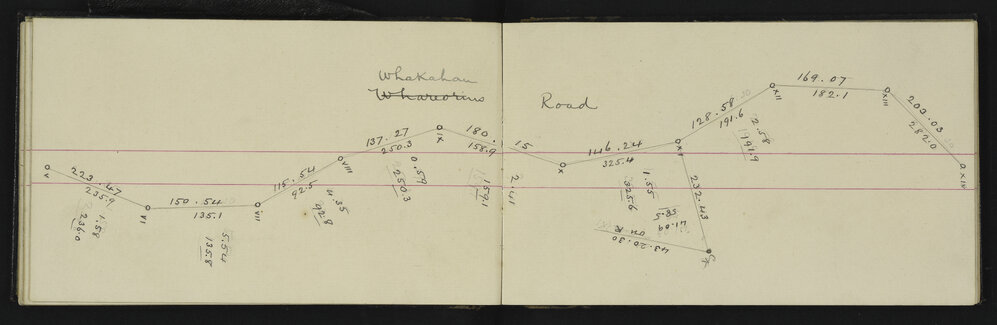 Whakahau
Whareorino Road
223.47
235.9
1.58
236.0
V
VI
150.54
135.1
5.54
135.8
VII
115.54
92.5
4.35
92.8
VIII
137.27
250.3
0.59
250.3
IX
180.15
158.9
2.41
159.1
X
146.24
325.4
1.55
325.6
XI
128.58
191.6
2.58
191.9
XII
169.07
182.1
XIII
203.03
282.0
XIV
232.43
58.5
41.09
on R
43.20.30